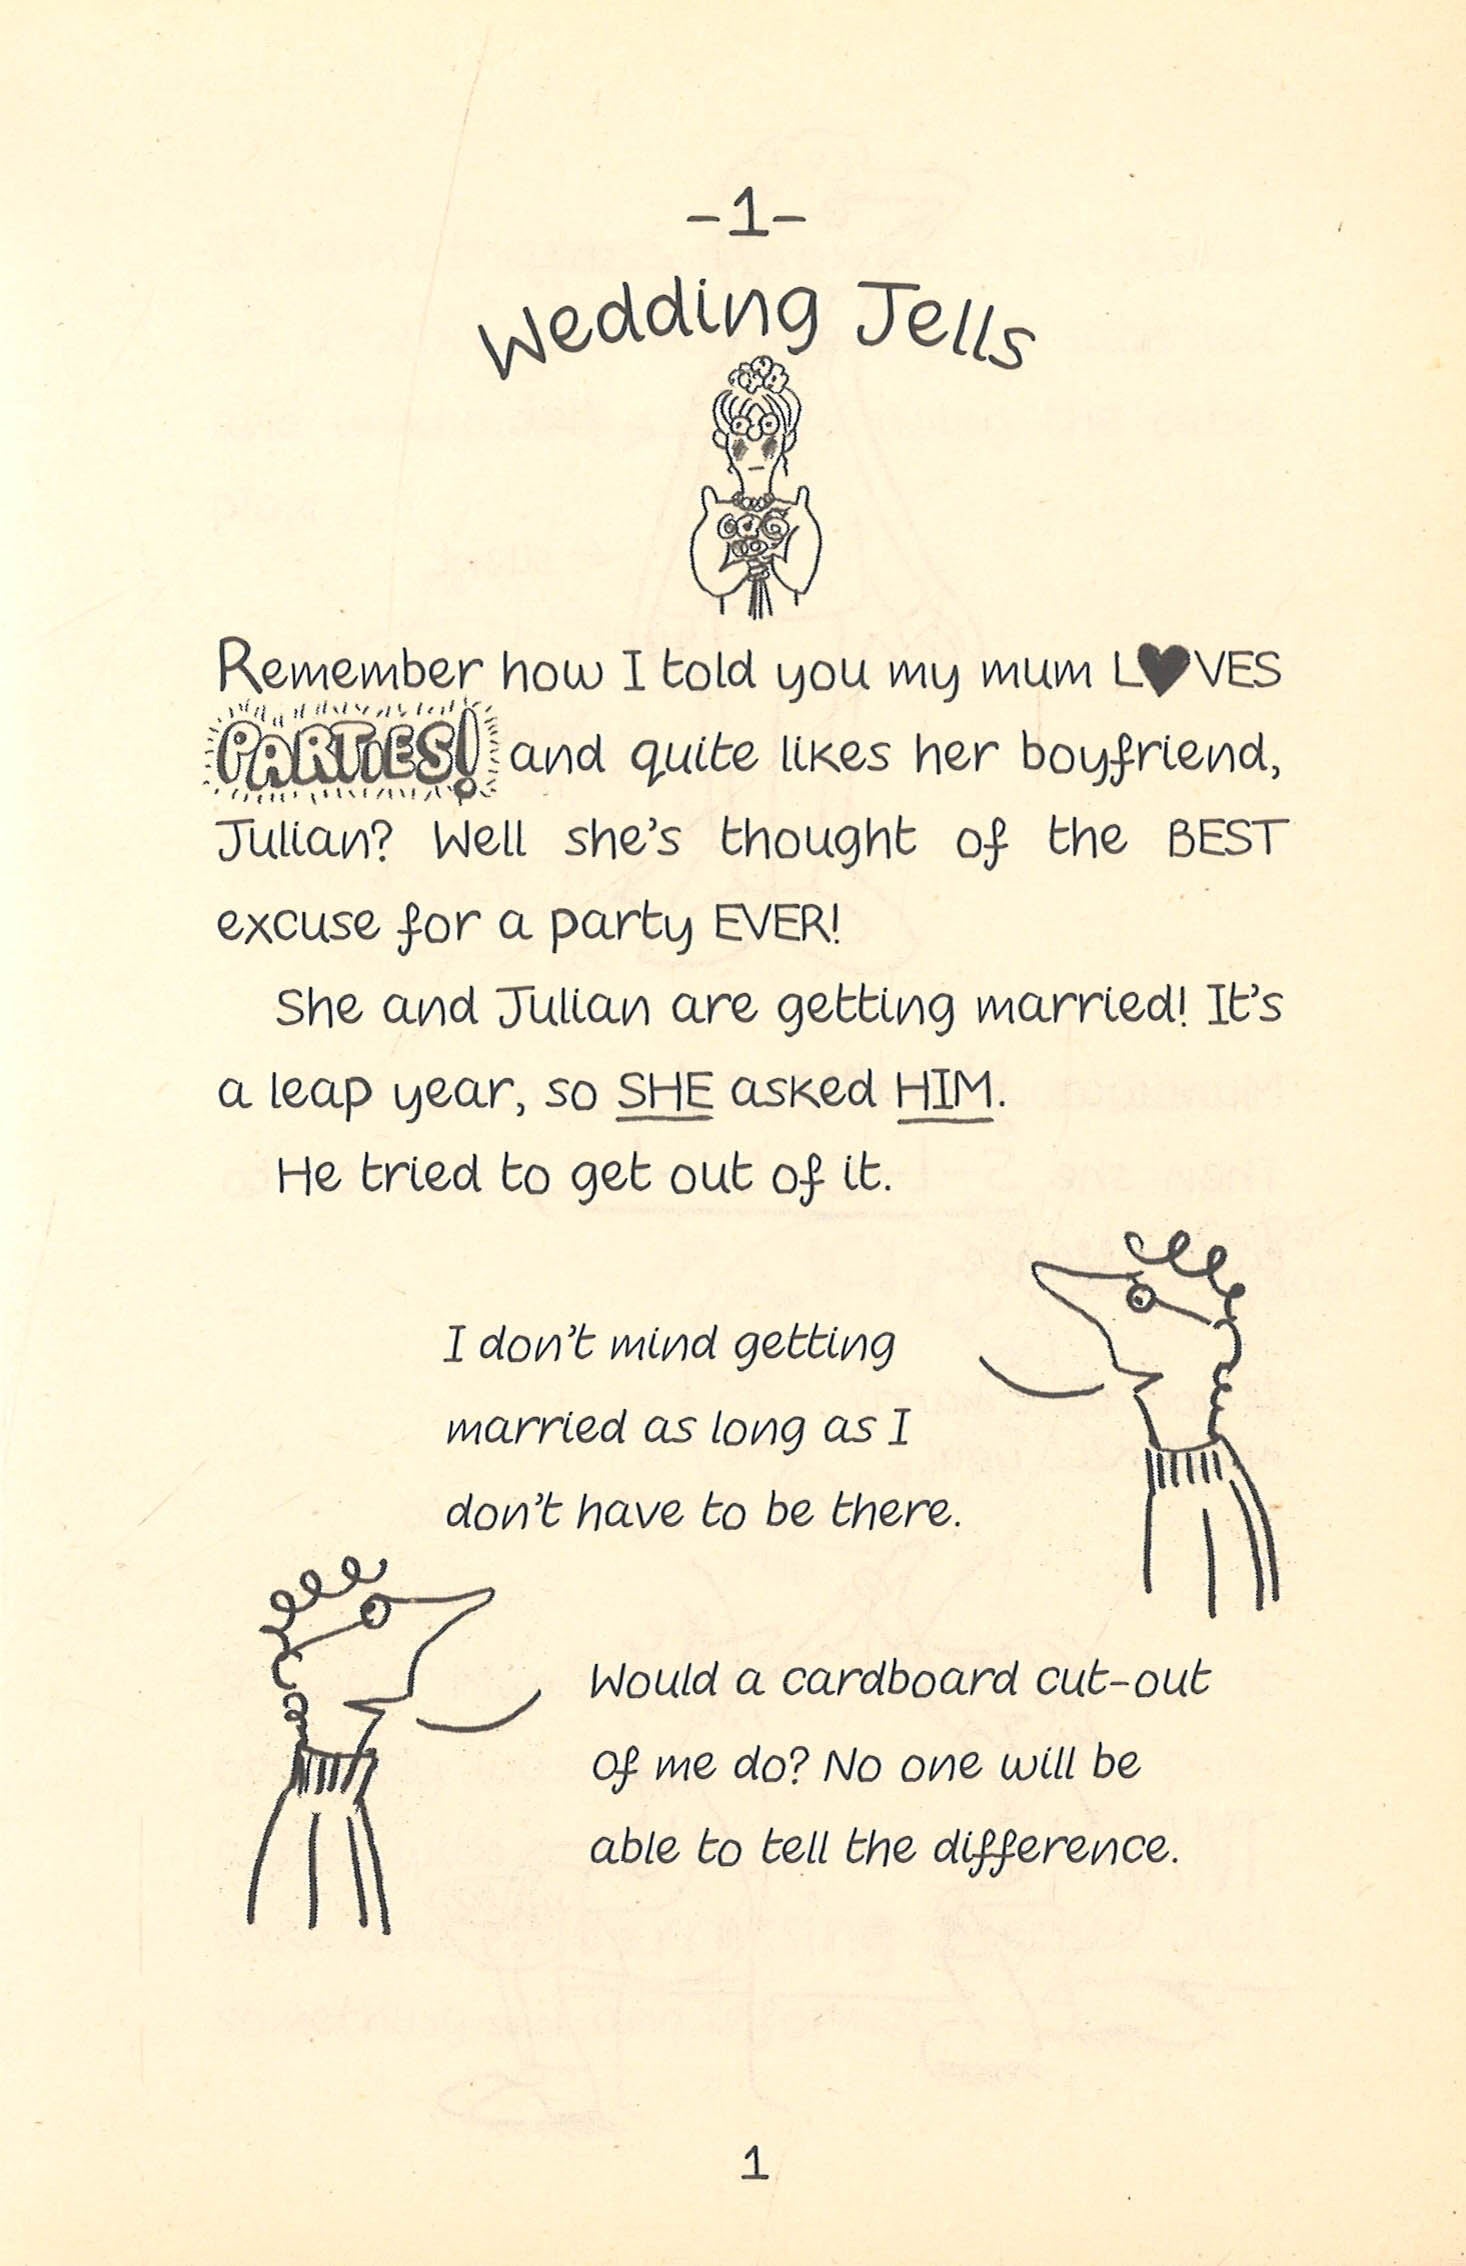 -1-
Wedding Jells
Remember how I told you my mum L♥VES
PARTIES! and quite likes her boyfriend,
Julian? Well she's thought of the BEST
excuse for a party EVER!
She and Julian are getting married! It's
a leap year, so SHE asked HIM.
He tried to get out of it.
I don't mind getting
married as long as I
don't have to be there.
Would a cardboard cut-out
of me do? No one will be
able to tell the difference.
1